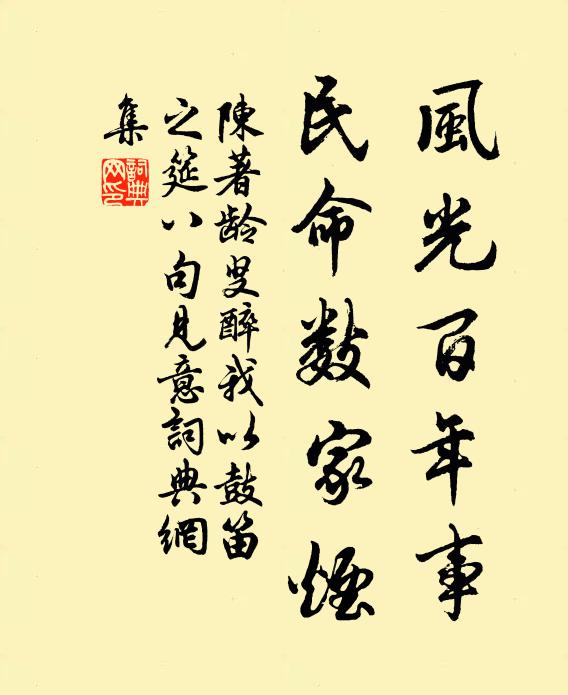 風光百年事
民命数家煙
陳著龄叟醉我以鼓笛
之筵八句見意詞典網
集
詞典網印